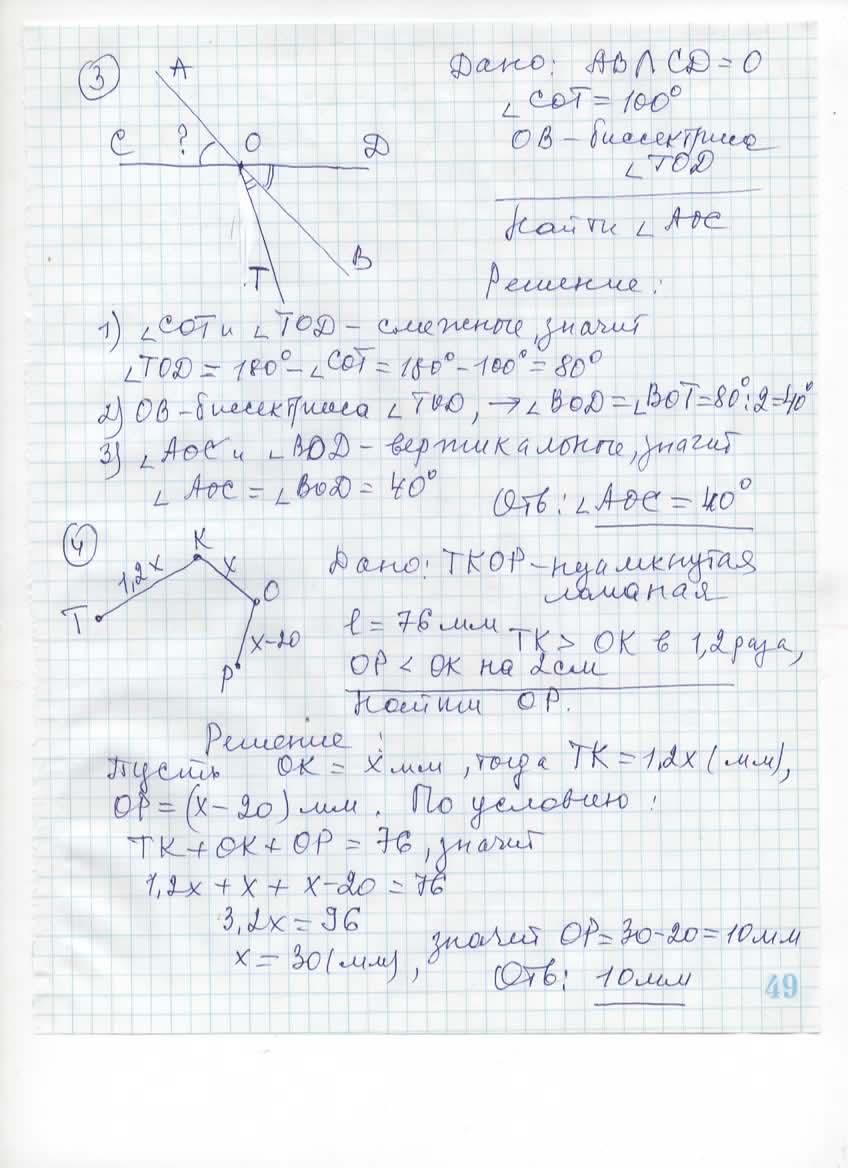 3
A
C ? O D
B
T
Дано: AB∩CD=O
∠COT=100°
OB – биссектриса
∠TOD
Найти ∠AOC
Решение:
1) ∠COT и ∠TOD – смежные, значит
∠TOD = 180° – ∠COT = 180° – 100° = 80°
2) OB – биссектриса ∠TOD, → ∠BOD = ∠BOT = 80°:2 = 40°
3) ∠AOC и ∠BOD – вертикальные, значит
∠AOC = ∠BOD = 40°
Отв: ∠AOC = 40°
4
K
1,2x x
T O
x-20
P
Дано: TKOP – незамкнутая
ломаная
l = 76 мм
TK > OK в 1,2 раза,
OP < OK на 2см
Найти OP.
Решение:
Пусть OK = x мм, тогда TK = 1,2x (мм),
OP = (x-20) мм. По условию:
TK + OK + OP = 76, значит
1,2x + x + x-20 = 76
3,2x = 96
x = 30 (мм), значит OP = 30-20 = 10мм
Отв: 10мм
49